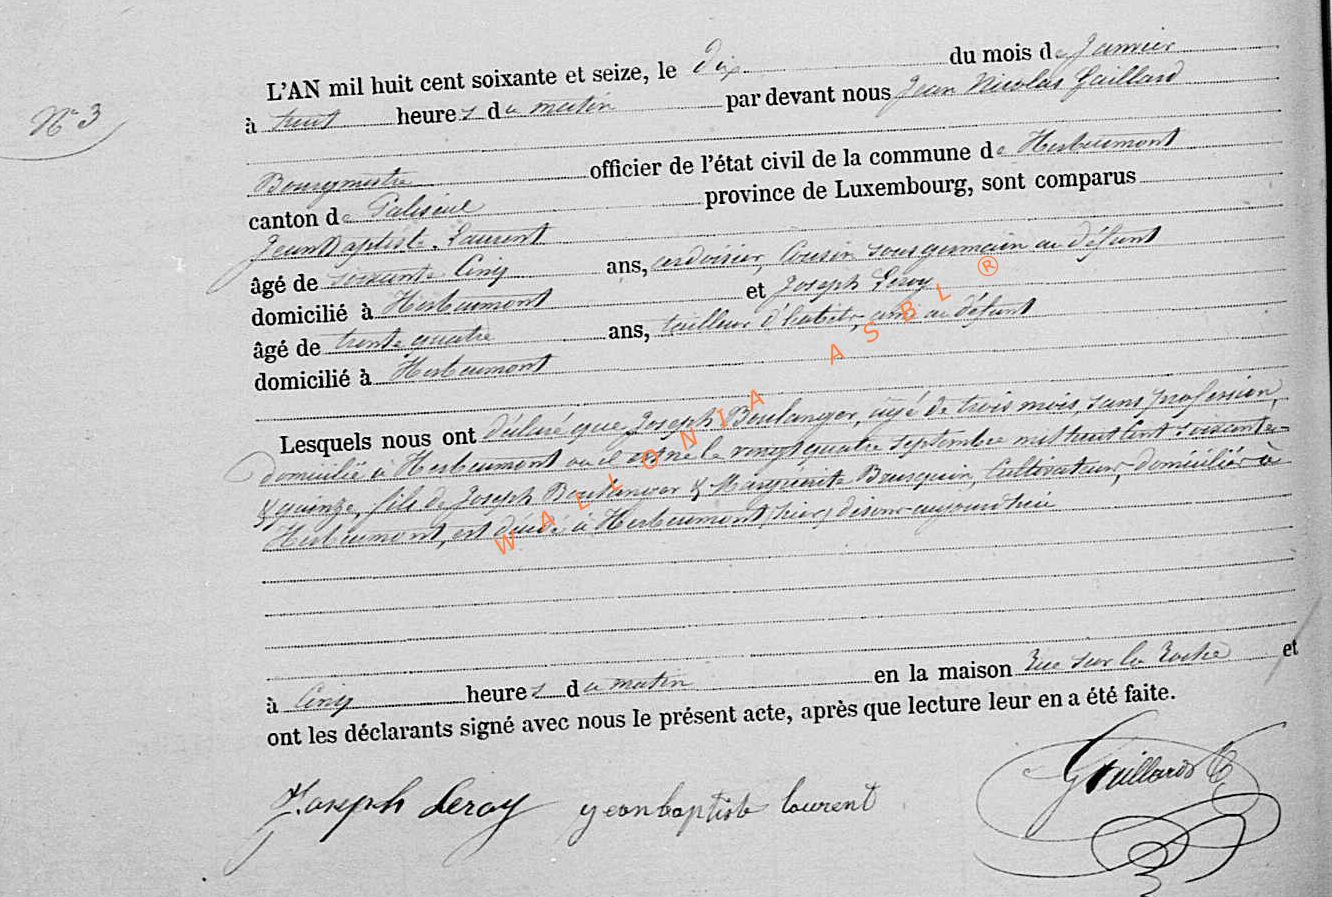 L'AN mil huit cent soixante et seize, le dix du mois de Janvier
N° 3
à huit heures du matin par devant nous Jean Nicolas Gaillard
Bourgmestre officier de l'état civil de la commune de Herbeumont
canton de Paliseul province de Luxembourg, sont comparus
Jean Baptiste Laurent
âgé de soixante cinq ans, ardoisier, Cousin sous germain au défunt
domicilié à Herbeumont et Joseph Leroy
âgé de trente quatre ans, tailleur d'habits, ami au défunt
domicilié à Herbeumont
Lesquels nous ont déclaré que Joseph Boulanger, âgé de trois mois, sans profession,
domicilié à Herbeumont où il est né le vingt quatre septembre mil huit Cent soixante-
& quinze, fils de Joseph Boulanger & Marguerite Bousquin, Cultivateurs, domiciliés à
Herbeumont, est décédé à Herbeumont, hier, disons aujourd'hui
à Cinq heures du matin en la maison Rue sur la Roche et
ont les déclarants signé avec nous le présent acte, après que lecture leur en a été faite.
Joseph Leroy jean baptiste laurent Gaillard
WALLONIA ASBL ®